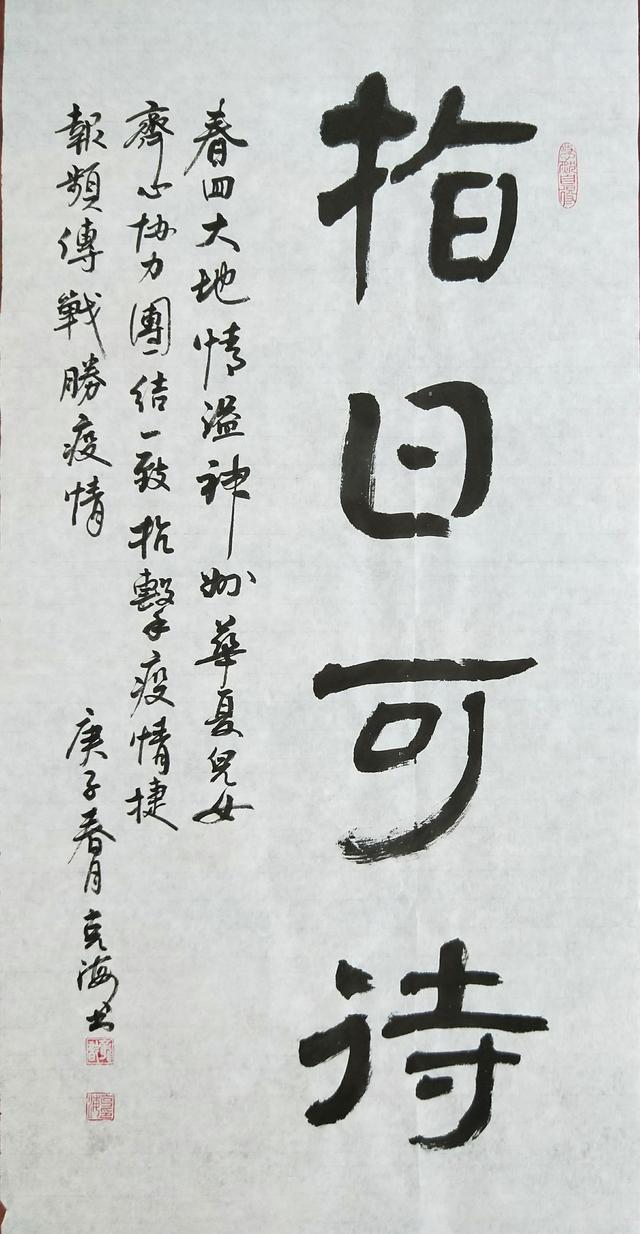 指日可待
春回大地情溢神州華夏兒女
齊心協力團結一致抗擊疫情捷
報頻傳戰勝疫情
庚子春月克海书